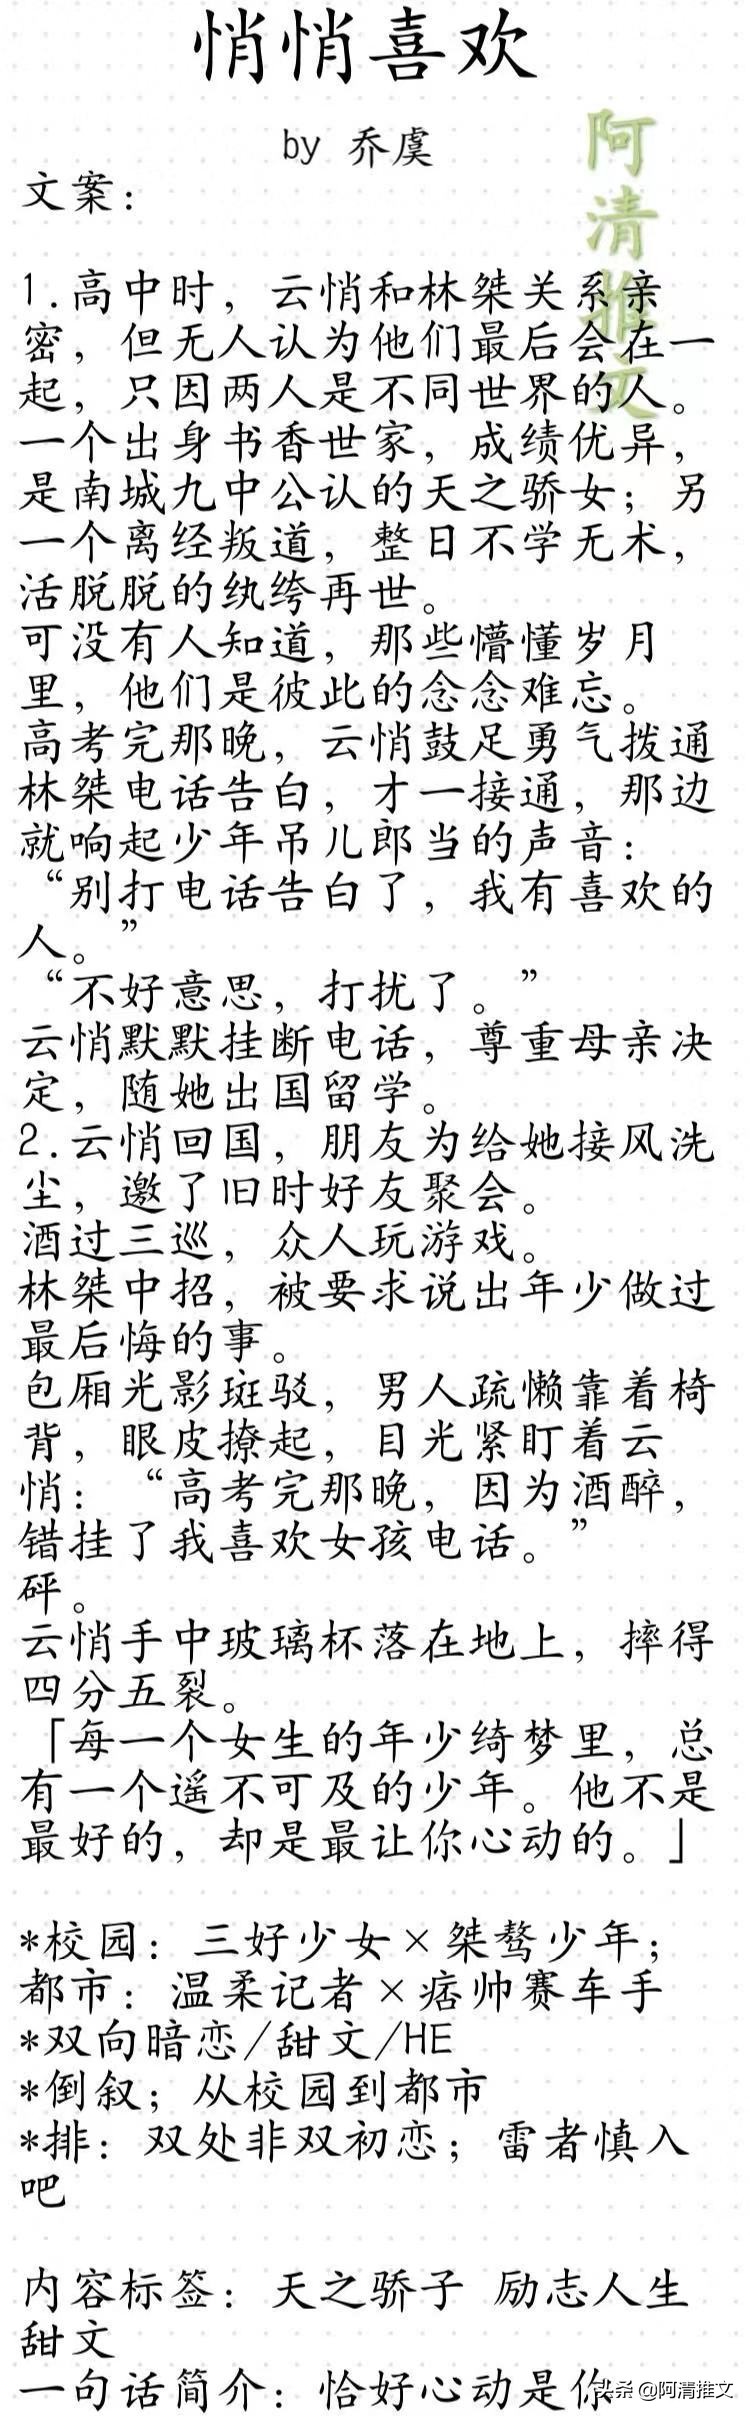 悄悄喜欢
by 乔虞
阿清推文
文案：
1.高中时，云悄和林桀关系亲
密，但无人认为他们最后会在一
起，只因两人是不同世界的人。
一个出身书香世家，成绩优异，
是南城九中公认的天之骄女；另
一个离经叛道，整日不学无术，
活脱脱的纨绔再世。
可没有人知道，那些懵懂岁月
里，他们是彼此的念念难忘。
高考完那晚，云悄鼓足勇气拨通
林桀电话告白，才一接通，那边
就响起少年吊儿郎当的声音：
“别打电话告白了，我有喜欢的
人。”
“不好意思，打扰了。”
云悄默默挂断电话，尊重母亲决
定，随她出国留学。
2.云悄回国，朋友为给她接风洗
尘，邀了旧时好友聚会。
酒过三巡，众人玩游戏。
林桀中招，被要求说出年少做过
最后悔的事。
包厢光影斑驳，男人疏懒靠着椅
背，眼皮撩起，目光紧盯着云
悄：“高考完那晚，因为酒醉，
错挂了我喜欢女孩电话。”
砰。
云悄手中玻璃杯落在地上，摔得
四分五裂。
「每一个女生的年少绮梦里，总
有一个遥不可及的少年。他不是
最好的，却是最让你心动的。」
*校园：三好少女×桀骜少年；
都市：温柔记者×痞帅赛车手
*双向暗恋/甜文/HE
*倒叙；从校园到都市
*排：双处非双初恋；雷者慎入
吧
内容标签：天之骄子 励志人生
甜文
一句话简介：恰好心动是你
头条 @阿清推文